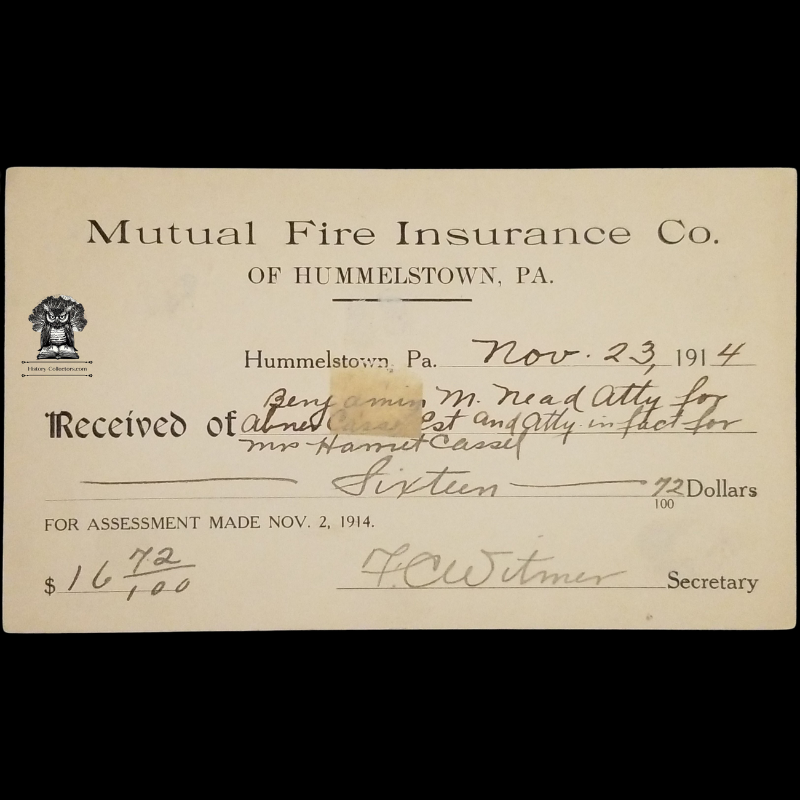 Mutual Fire Insurance Co.
OF HUMMELSTOWN, PA.
History Collectors.com
Hummelstown, Pa. Nov. 23, 1914
Benjamin M. Nead Atty for
Received of Abner Cassel Est and Atty in fact for
Mrs Harriet Cassel
Sixteen 72/100 Dollars
FOR ASSESSMENT MADE NOV. 2, 1914.
$ 16 72/100 F. C. Witmer Secretary